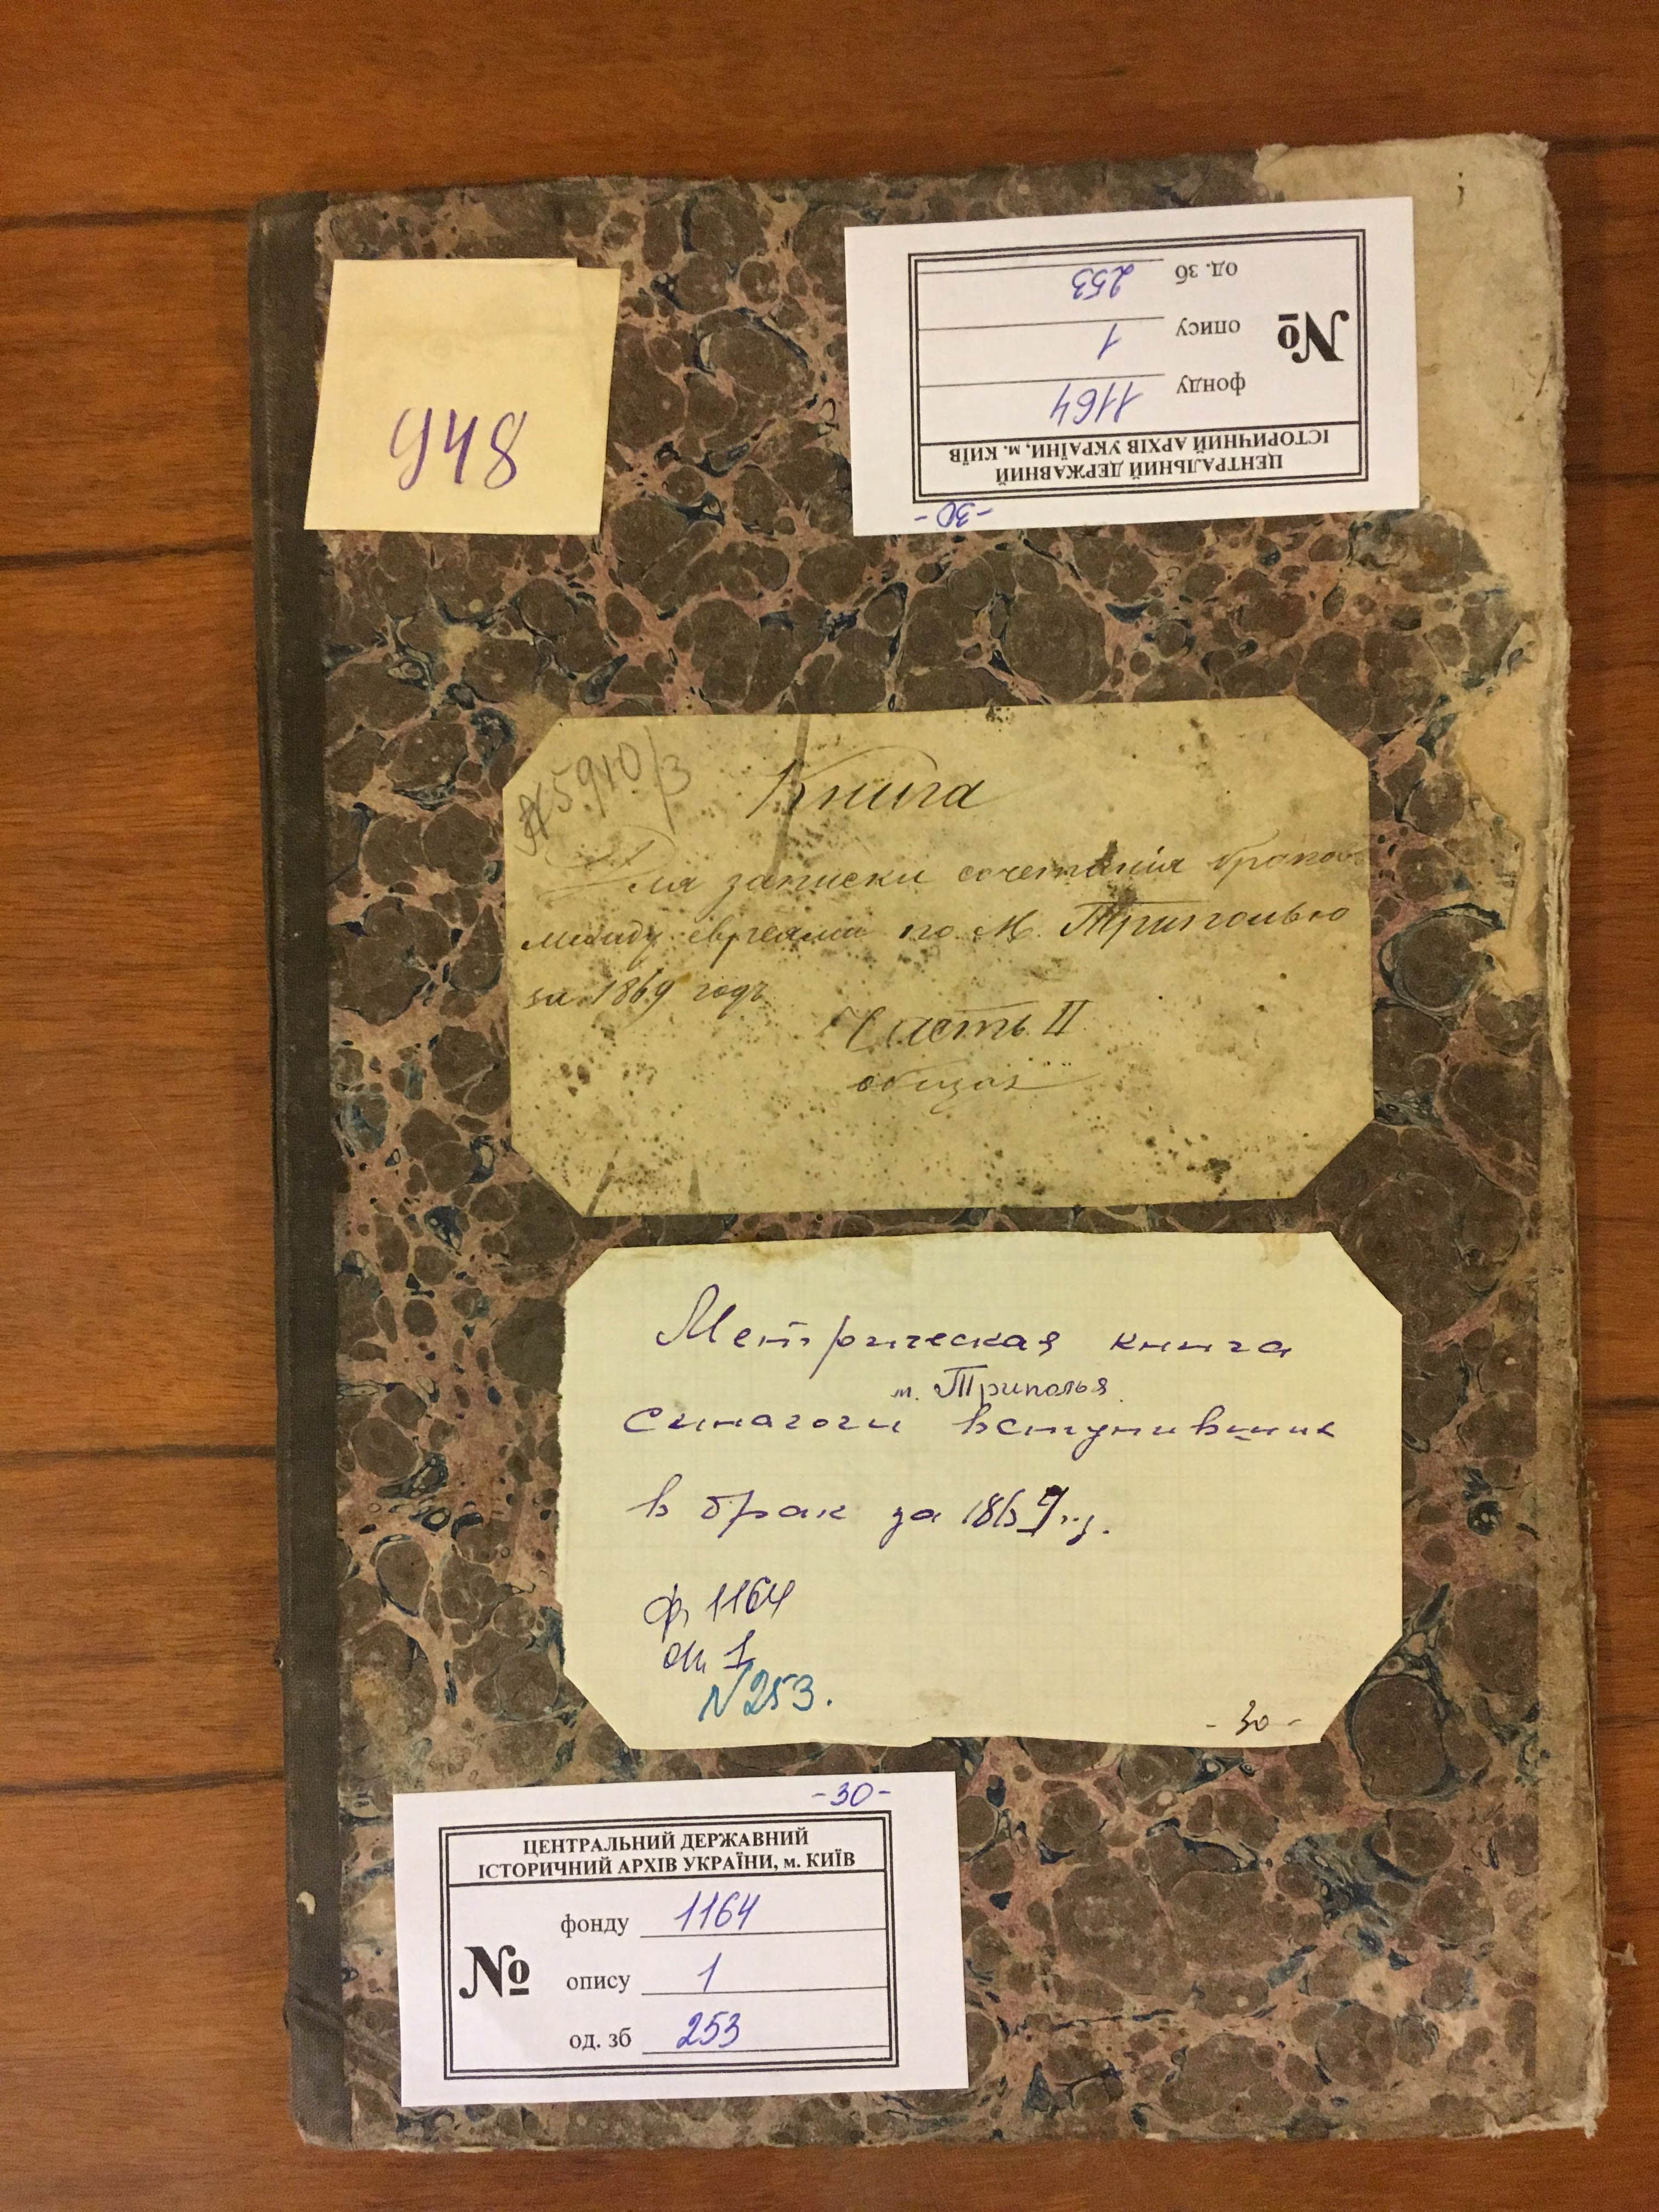 948
-30-
ЦЕНТРАЛЬНИЙ ДЕРЖАВНИЙ
ІСТОРИЧНИЙ АРХІВ УКРАЇНИ, м. КИЇВ
№
фонду 1164
опису 1
од. зб 253
№5910/3
Книга
Для записки сочетанія браков
между евреями по М. Триполью
за 1869 годъ
Часть II
общая
Метрическая книга
м. Триполья
синагоги вступивших
в брак за 1869 г.
ф. 1164
оп. 1
N253.
-30-
-30-
ЦЕНТРАЛЬНИЙ ДЕРЖАВНИЙ
ІСТОРИЧНИЙ АРХІВ УКРАЇНИ, м. КИЇВ
№
фонду 1164
опису 1
од. зб 253